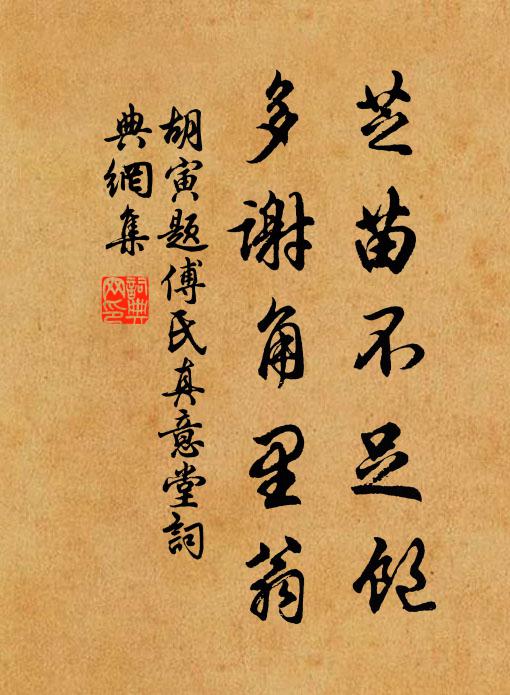 芝苗不足飽
多謝角里翁
胡寅題傅氏真意堂詞
典網集
詞典
网印